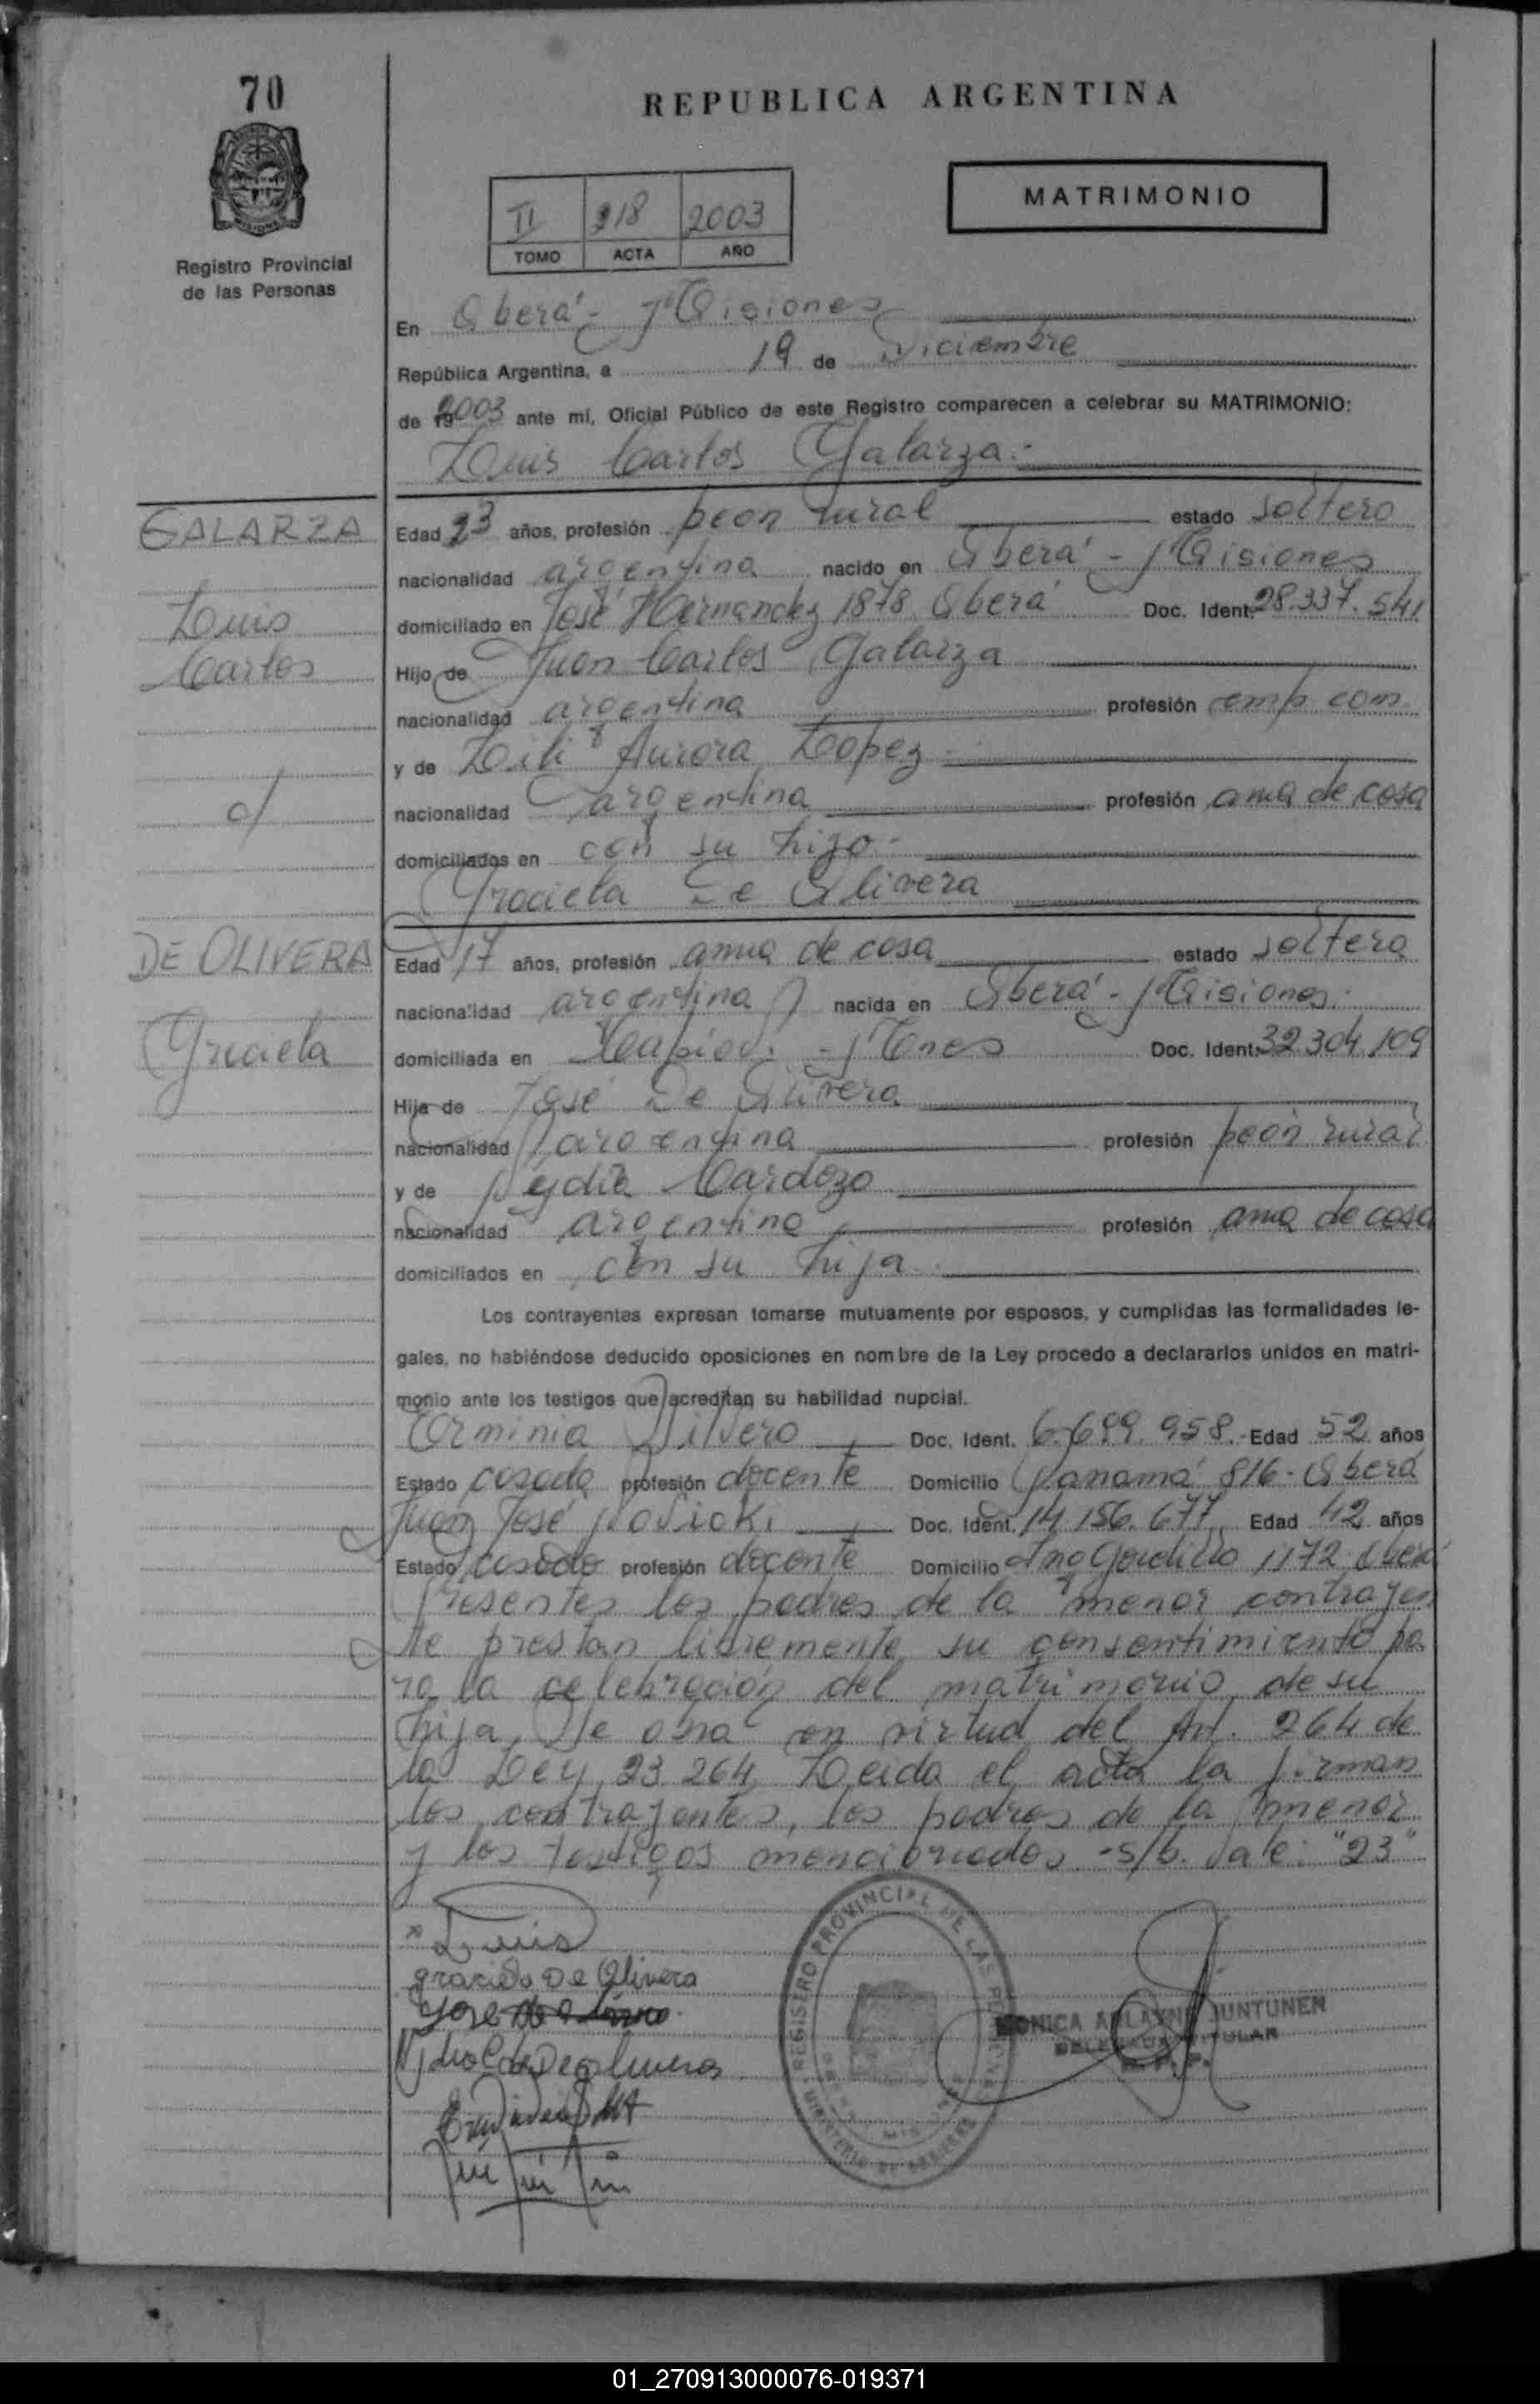 70
REPUBLICA ARGENTINA
MATRIMONIO
II 218 2003
TOMO ACTA AÑO
Registro Provincial
de las Personas
En Oberá - Misiones
República Argentina, a 19 de Diciembre
de 192003 ante mí, Oficial Público de este Registro comparecen a celebrar su MATRIMONIO:
Luis Carlos Galarza.-
GALARZA
Luis
Carlos
c/
DE OLIVERA
Graciela
Edad 23 años, profesión peon rural estado soltero
nacionalidad argentina nacido en Oberá - Misiones
domiciliado en José Hernandez 1878 Oberá Doc. Ident. 28.337.541
Hijo de Juan Carlos Galarza
nacionalidad argentina profesión emp com
y de Lili Aurora Lopez
nacionalidad argentina profesión ama de casa
domiciliados en con su hijo.-
Graciela De Olivera
Edad 17 años, profesión ama de casa estado soltera
nacionalidad argentina nacida en Oberá - Misiones.
domiciliada en - Mnes Doc. Ident. 32304109
Hija de José De Olivera
nacionalidad argentina profesión peón rural
y de Nydia Cardozo
nacionalidad argentina profesión ama de casa
domiciliados en con su hija.
Los contrayentes expresan tomarse mutuamente por esposos, y cumplidas las formalidades le-
gales, no habiéndose deducido oposiciones en nombre de la Ley procedo a declararlos unidos en matri-
monio ante los testigos que acreditan su habilidad nupcial.
Erminia Doc. Ident. 6.699.958.- Edad 52 años
Estado casada profesión docente Domicilio Panamá 816 - Oberá
Juan José Doc. Ident. 14.156.677 Edad 42 años
Estado casado profesión docente Domicilio Gordillo 1172 Oberá
Presentes los padres de la menor contrayen
te prestan libremente su consentimiento pa
ra la celebración del matrimonio de su
hija, Se obra en virtud del Art. 264 de
la Ley 23.264 Leida el acta la firman
los contrayentes, los padres de la menor
y los testigos mencionados.-s/b. Vale: "23"
Luis
graciela De Olivera
Jose
REGISTRO PROVINCIAL DE LAS PERSONAS
MINISTERIO DE GOBIERNO
MONICA JUNTUNEN
DELEGADA TITULAR
R. P. P.
01_270913000076-019371